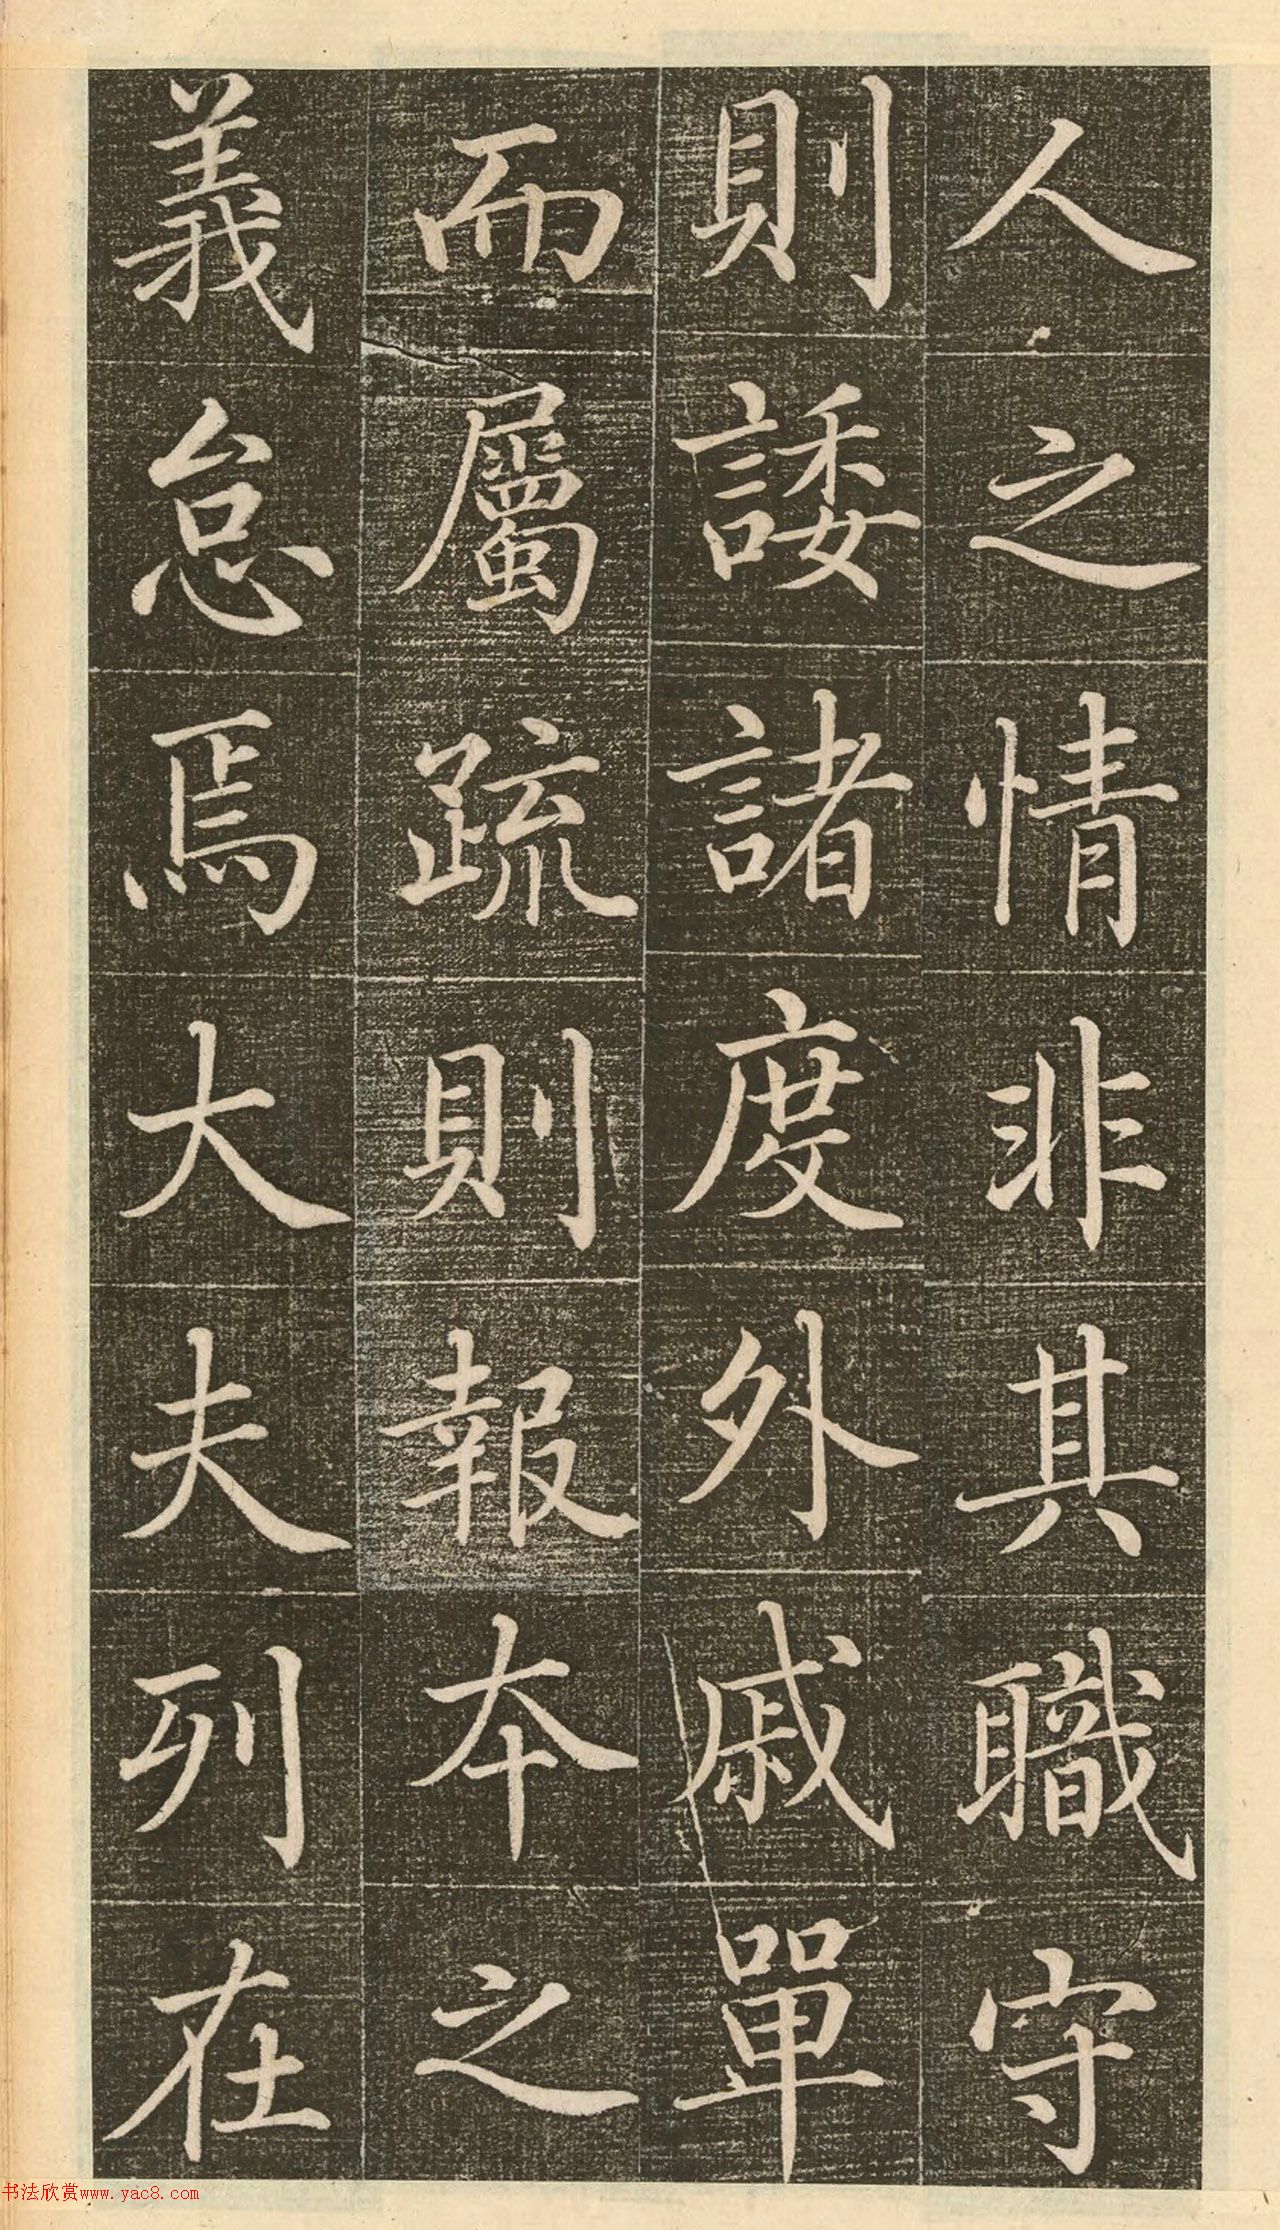 人之情非其職守
則諉諸度外戚單
而屬疏則報本之
義怠焉大夫列在
书法欣赏www.yac8.com